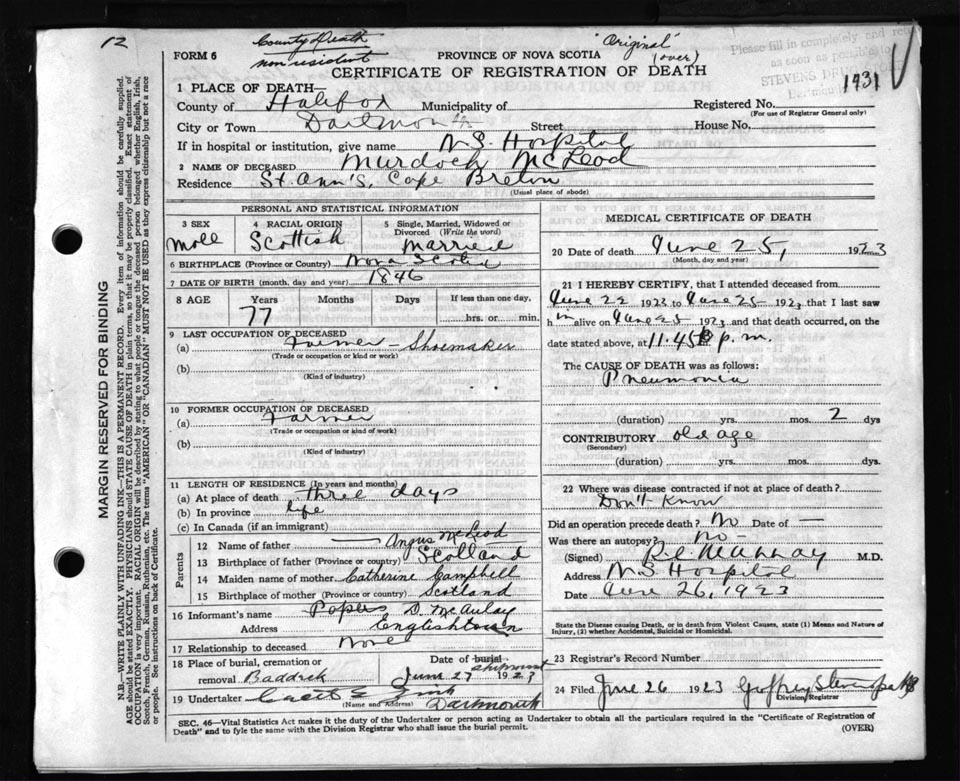 12
County of Death
non resident
"Original"
(over)
Please fill in completely and return
as soon as possible to
1931
FORM 6
PROVINCE OF NOVA SCOTIA
CERTIFICATE OF REGISTRATION OF DEATH
1 PLACE OF DEATH—
County of Halifax Municipality of
Registered No.
(For use of Registrar General only)
City or Town Dartmouth Street House No.
If in hospital or institution, give name N.S. Hospital
2 NAME OF DECEASED Murdoch McLeod
Residence St. Ann's, Cape Breton
(Usual place of abode)
PERSONAL AND STATISTICAL INFORMATION
3 SEX Male
4 RACIAL ORIGIN Scottish
5 Single, Married, Widowed or Divorced (Write the word) Married
6 BIRTHPLACE (Province or Country) Nova Scotia
7 DATE OF BIRTH (month, day and year) 1846
8 AGE Years 77 Months Days If less than one day, hrs. or min.
9 LAST OCCUPATION OF DECEASED
(a) Farmer Shoemaker
(Trade or occupation or kind or work)
(b)
(Kind of industry)
10 FORMER OCCUPATION OF DECEASED
(a) Farmer
(Trade or occupation or kind of work)
(b)
(Kind of industry)
11 LENGTH OF RESIDENCE (In years and months)
(a) At place of death three days
(b) In province life
(c) In Canada (if an immigrant)
Parents
12 Name of father Angus McLeod
13 Birthplace of father (Province or country) Scotland
14 Maiden name of mother Catherine Campbell
15 Birthplace of mother (Province or country) Scotland
16 Informant's name Papers D. McAulay
Address Englishtown
17 Relationship to deceased None
18 Place of burial, cremation or removal Baddeck
Date of burial shipment June 27 1923
19 Undertaker
(Name and Address) Dartmouth
MEDICAL CERTIFICATE OF DEATH
20 Date of death June 25, 1923
(Month, day and year)
21 I HEREBY CERTIFY, that I attended deceased from
June 22 1923 to June 25 1923 that I last saw
h im alive on June 25 1923 and that death occurred, on the
date stated above, at 11.45 p.m.
The CAUSE OF DEATH was as follows:
Pneumonia
(duration) yrs. mos. 2 dys
CONTRIBUTORY old age
(Secondary)
(duration) yrs. mos. dys.
22 Where was disease contracted if not at place of death?
Don't Know
Did an operation precede death? No Date of —
Was there an autopsy? No
(Signed) R.C. Murray M.D.
Address N.S. Hospital
Date June 26, 1923
State the Disease causing Death, or in death from Violent Causes, state (1) Means and Nature of
Injury, (2) whether Accidental, Suicidal or Homicidal.
23 Registrar's Record Number
24 Filed June 26 1923 Geoffrey Stevens
Division Registrar
SEC. 46—Vital Statistics Act makes it the duty of the Undertaker or person acting as Undertaker to obtain all the particulars required in the "Certificate of Registration of
Death" and to fyle the same with the Division Registrar who shall issue the burial permit.
(OVER)
MARGIN RESERVED FOR BINDING
N.B.—WRITE PLAINLY WITH UNFADING INK—THIS IS A PERMANENT RECORD. Every item of information should be carefully supplied.
AGE should be stated EXACTLY. PHYSICIANS should STATE CAUSE OF DEATH in plain terms, so that it may be properly classified. Exact statement of
OCCUPATION is very important. RACIAL ORIGIN will be described by stating to what people or tongue the deceased person belonged whether English, Irish,
Scotch, French, German, Russian, Ruthenian, etc. The terms "AMERICAN" OR "CANADIAN" MUST NOT BE USED as they express citizenship but not a race
or people. See instructions on back of Certificate.